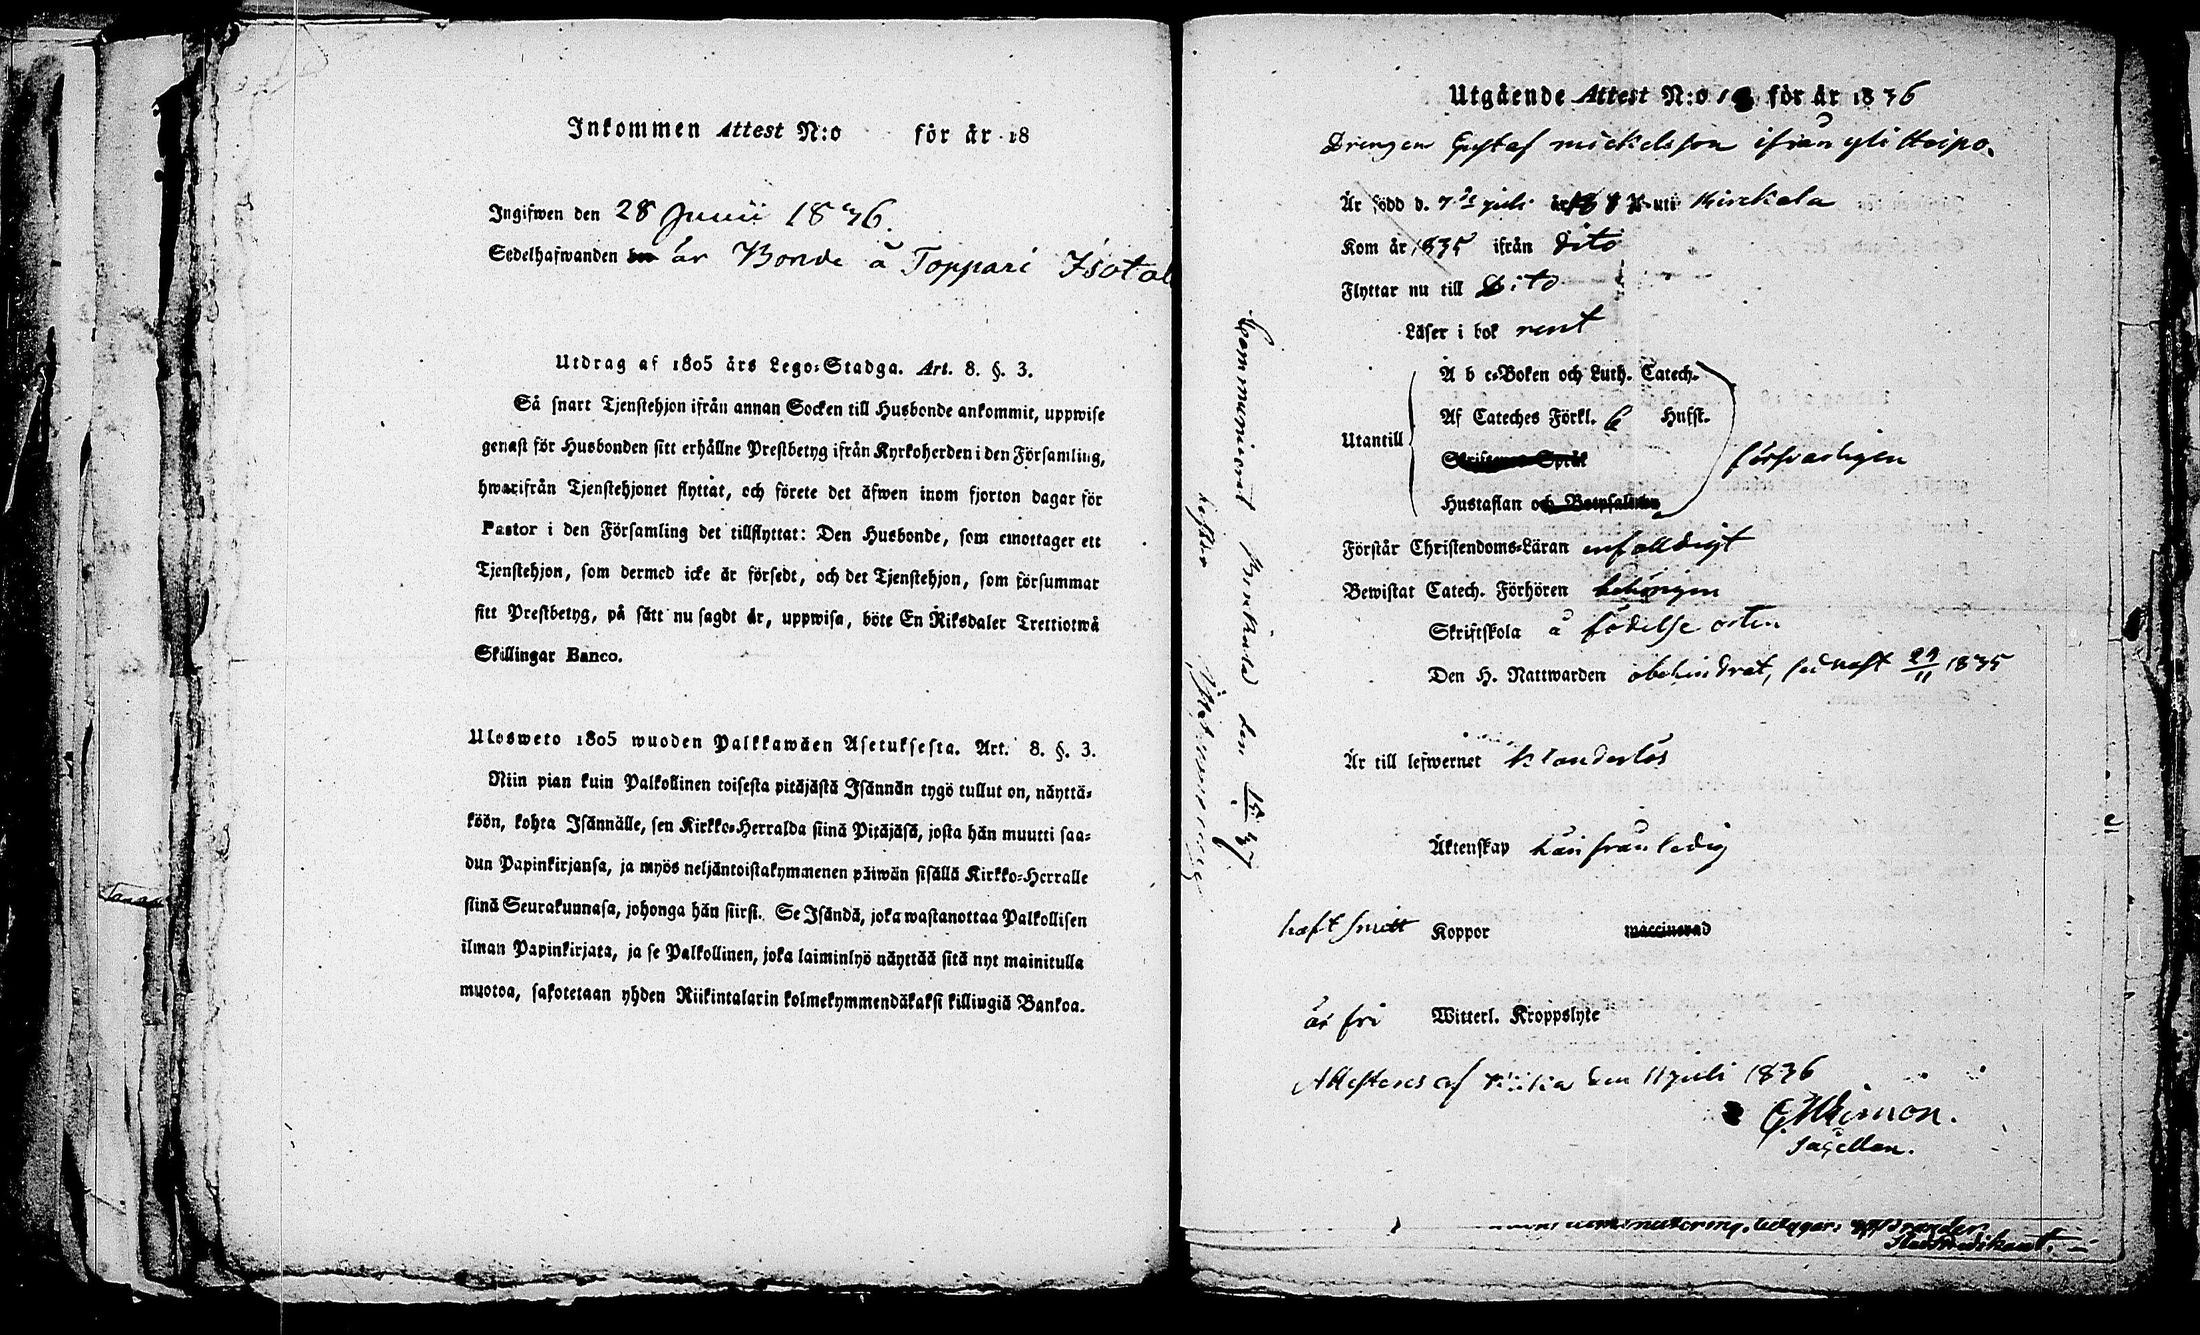 Inkommen Attest N:o för år 18
Ingifwen den 28 Junii 1836.
Sedelhafwanden är Bonde å Toppari Isotal
Utdrag af 1805 års Lego-Stadga. Art. 8. §. 3.
Så snart Tjenstehjon ifrån annan Socken till Husbonde ankommit, uppwise
genast för Husbonden sitt erhållne Prestbetyg ifrån Kyrkoherden i den Församling,
hwarifrån Tjenstehjonet flyttat, och förete det äfwen inom fjorton dagar för
Pastor i den Församling det tillflyttat: Den Husbonde, som emottager ett
Tjenstehjon, som dermed icke är försedt, och det Tjenstehjon, som försummar
sitt Prestbetyg, på sätt nu sagdt är, uppwisa, böte En Riksdaler Trettiotwå
Skillingar Banco.
Ulosweto 1805 wuoden Palkkawäen Asetuksesta. Art. 8. §. 3.
Niin pian kuin Palkollinen toisesta pitäjästä Isännän tygö tullut on, näyttä-
köön, kohta Isännälle, sen Kirkko-Herralda siinä Pitäjäsä, josta hän muutti saa-
dun Papinkirjansa, ja myös neljäntoistakymmenen päiwän sisällä Kirkko-Herralle
siinä Seurakunnasa, johonga hän siirsi. Se Isändä, joka wastanottaa Palkollisen
ilman Papinkirjata, ja se Palkollinen, joka laiminlyö näyttää sitä nyt mainitulla
muotoa, sakotetaan yhden Riikintalarin kolmekymmendäkaksi killingiä Bankoa.
Utgående Attest N:o 1 för år 1836
Drengen Gustaf Mickelsson ifrån yli Heipo.
Är född d. 7 juli uti Kirckala
Kom år 1835 ifrån Dito
Flyttar nu till Dito
Läser i bok rent
A b c-Boken och Luth. Catech.
Utantill
Af Cateches Förkl. 6 Hufst.
Skriftenes Språk
försvarligen
Hustaflan och Botpsalmen
Förstår Christendoms-Läran enfalldigt
Bewistat Catech. Förhören behörigen
Skriftskola å födelse orten
Den H. Nattwarden obehindrat, sednast 29/11 1835
Är till lefwernet klanderlös
Äktenskap härifrån ledig
haft smitt Koppor waccinerad
är fri Witterl. Kroppslyte
Attesteras af den 11 juli 1836
Sacellan.
Communicerat den